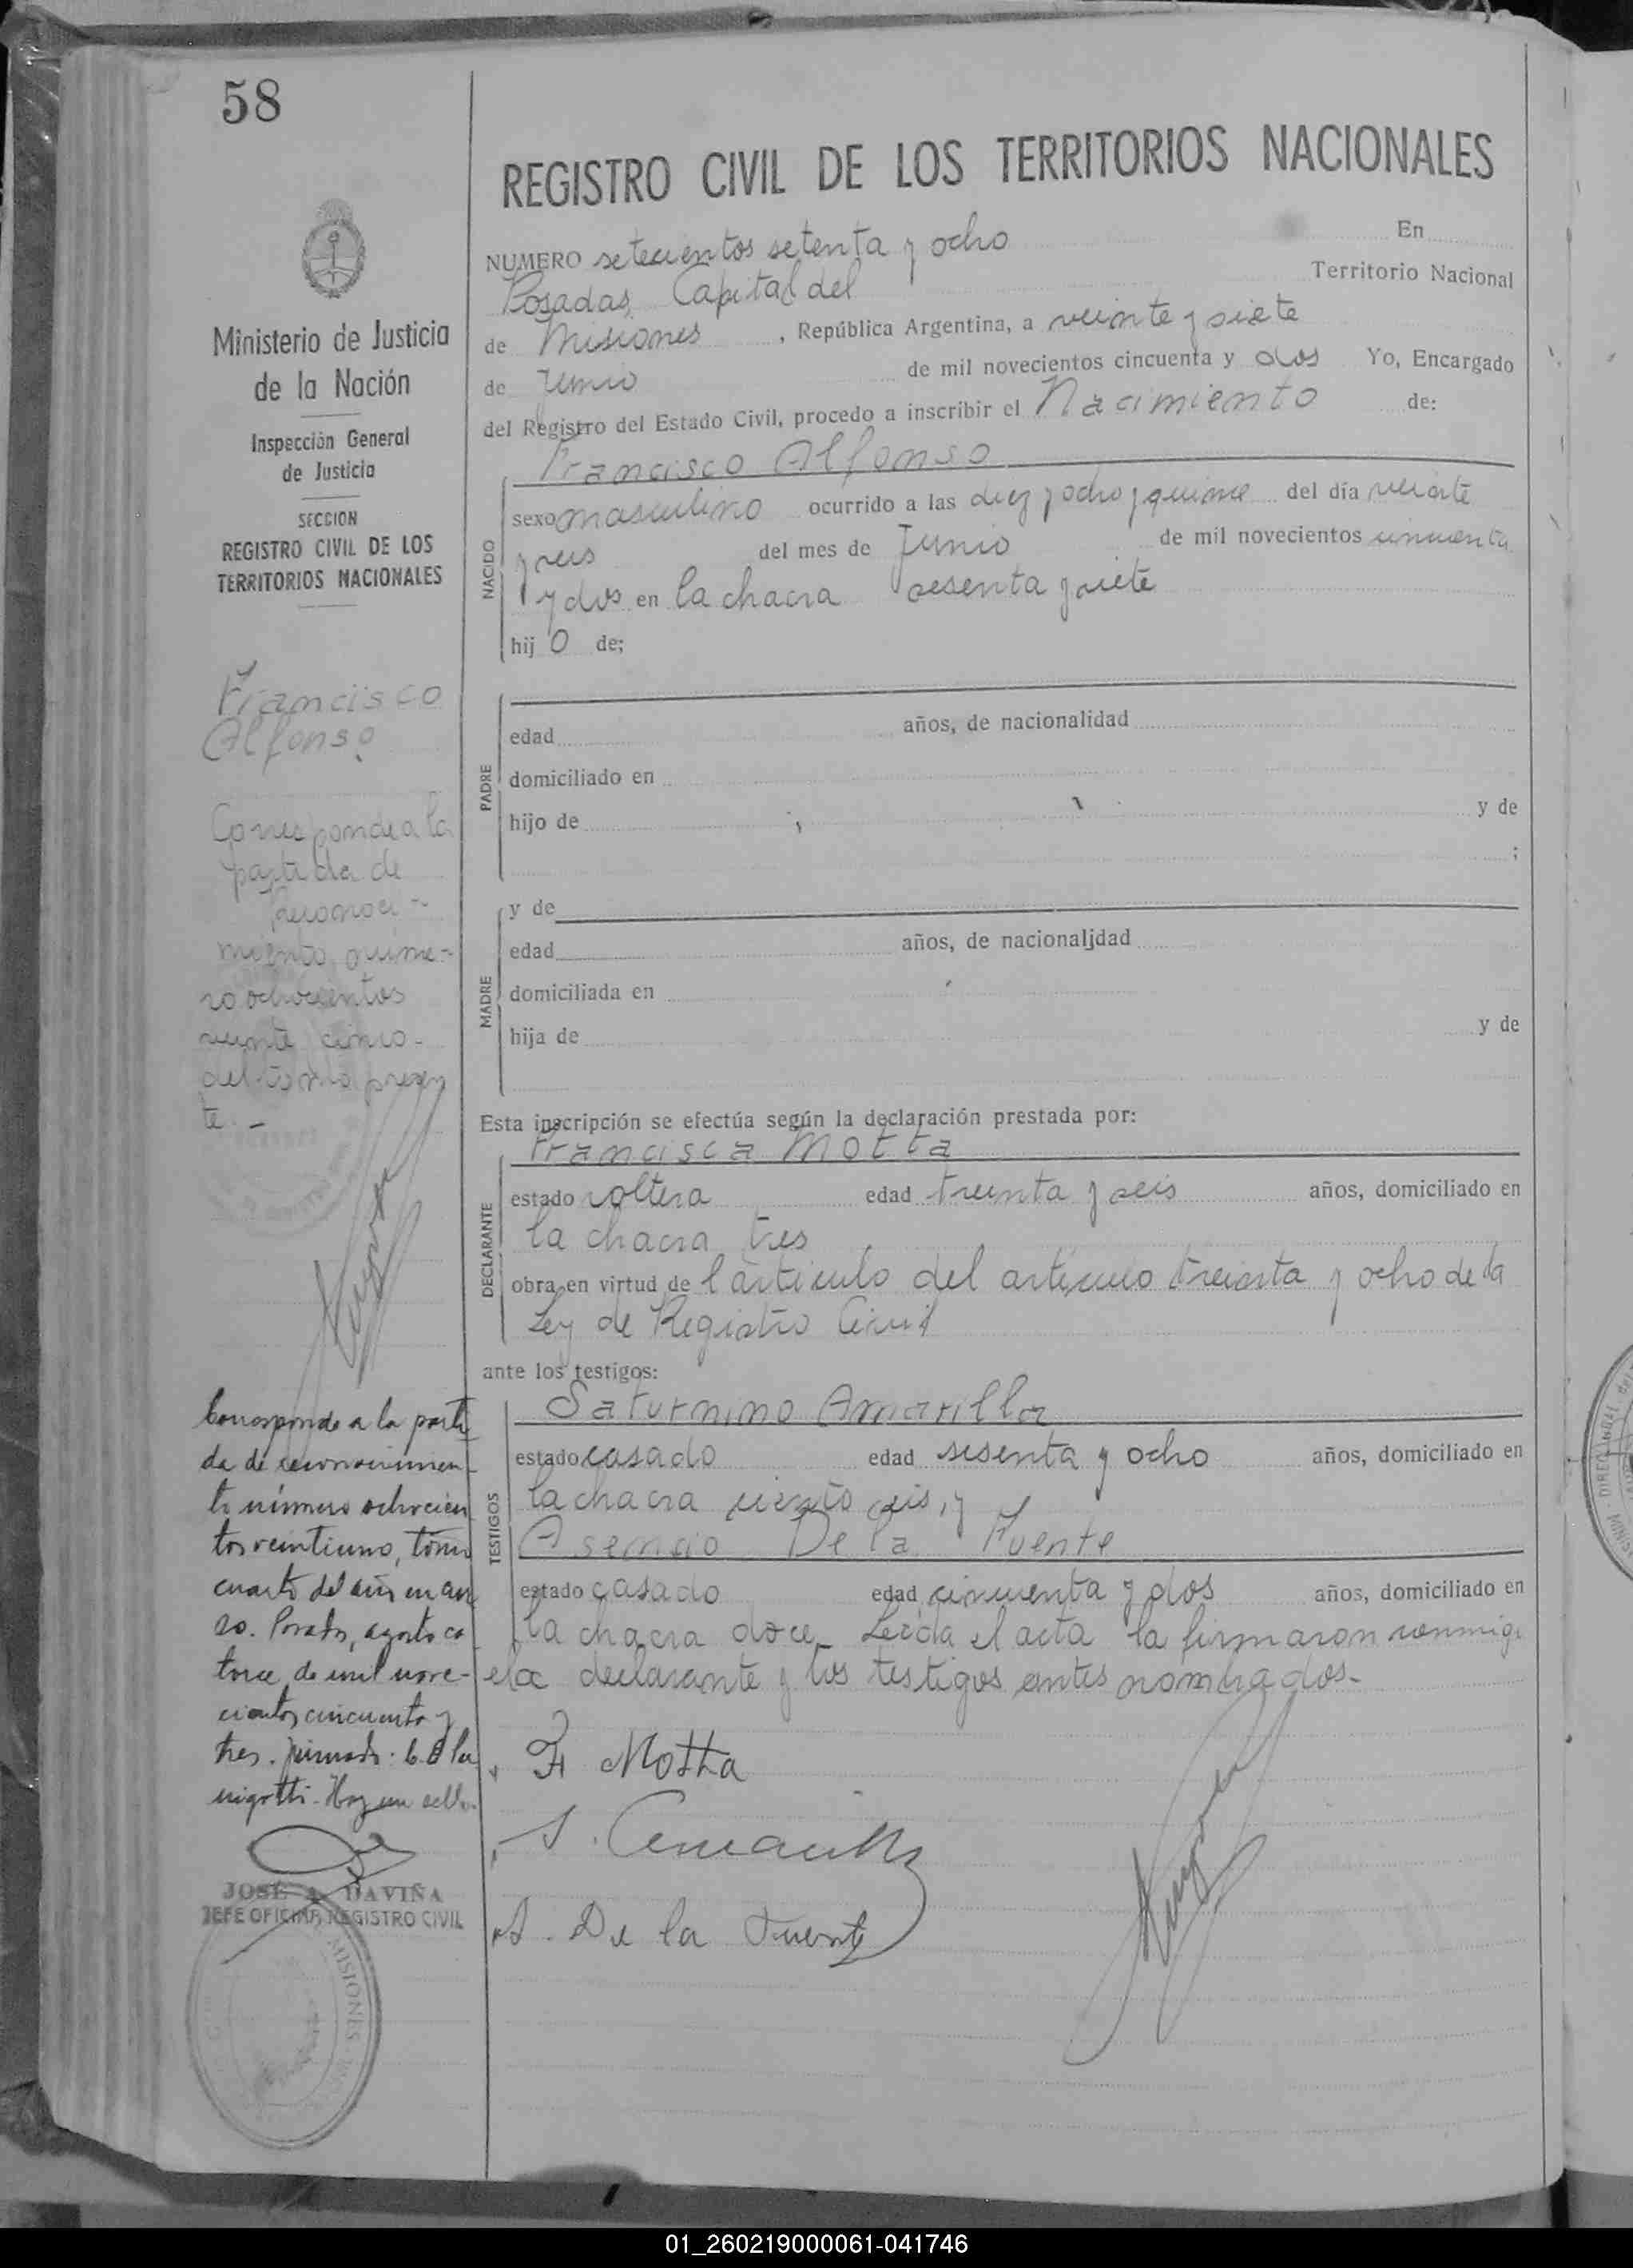 58
REGISTRO CIVIL DE LOS TERRITORIOS NACIONALES
NUMERO setecientos setenta y ocho En
Posadas, Capital del Territorio Nacional
de Misiones, República Argentina, a veinte y siete
de Junio de mil novecientos cincuenta y dos Yo, Encargado
del Registro del Estado Civil, procedo a inscribir el Nacimiento de:
Francisco Alfonso
NACIDO
sexo masculino ocurrido a las diez y ocho y quince del día veinte
y seis del mes de Junio de mil novecientos cincuenta
y dos en la chacra sesenta y siete
hij o de;
PADRE
edad años, de nacionalidad
domiciliado en
hijo de y de
;
MADRE
y de
edad años, de nacionaljdad
domiciliada en
hija de y de
Esta inscripción se efectúa según la declaración prestada por:
Francisca Motta
DECLARANTE
estado soltera edad treinta y seis años, domiciliado en
la chacra tres
obra en virtud de l'articulo del articulo treinta y ocho de la
Ley de Registro Civil
ante los testigos:
Saturnino Amarilla
TESTIGOS
estado casado edad sesenta y ocho años, domiciliado en
la chacra ciento seis, y
Asencio De la Fuente
estado casado edad cincuenta y dos años, domiciliado en
la chacra doce Leida el acta la firmaron conmigo
ela declarante y los testigos antes nombrados.-
F Motta
A. De la Fuente
Ministerio de Justicia
de la Nación
Inspección General
de Justicia
SECCION
REGISTRO CIVIL DE LOS
TERRITORIOS NACIONALES
Francisco
Alfonso
Corresponde a la
partida de
reconoci-
miento núme-
ro ochocientos
veinte cinco
del tomo presen
te.-
Corresponde a la parti
da de reconocimien
to número ochocien
tos veintiuno, tomo
cuarto del año en cur
so. Posadas, agosto ca
torce de mil nove-
cientos cincuenta y
tres. firmado:
Hay un sello.
JOSÉ A. DAVIÑA
JEFE OFICINA REGISTRO CIVIL
MISIONES
01_260219000061-041746